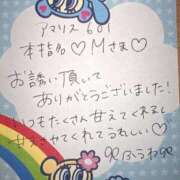 アマリス 601
本指名♡Mさま♡
お誘い頂いて
ありがとうございました!
いつもたくさん甘えてくれるし
甘やかせてくれてうれしい♡